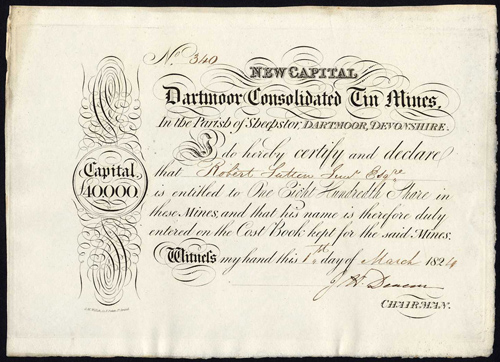 No. 340
NEW CAPITAL
Dartmoor Consolidated Tin Mines,
In the Parish of Sheepstor, DARTMOOR, DEVONSHIRE.
I do hereby certify and declare
that Robert Junr. Esqre
is entitled to One Eight Hundredth Share in
these Mines, and that his name is therefore duly
entered on the Cost Book kept for the said Mines.
Witness my hand this 1st. day of March 182
J H Deacon
CHAIRMAN.
Capital
£10000.